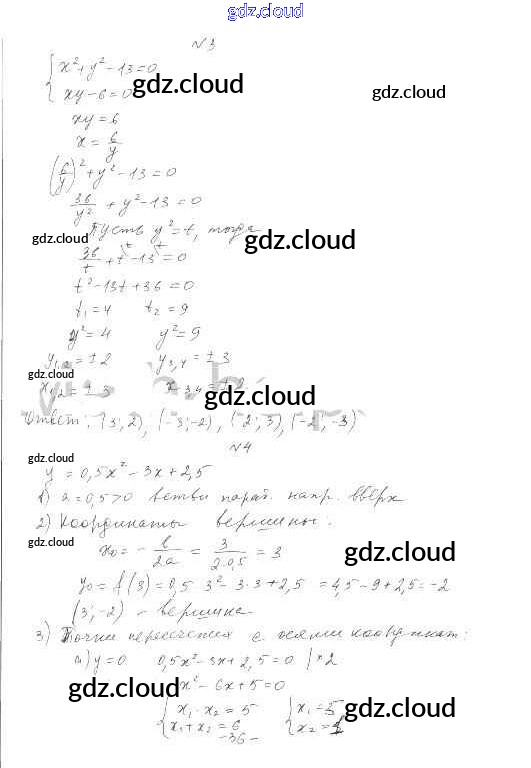 gdz.cloud
№3
x² + y² - 13 = 0
xy - 6 = 0
gdz.cloud
gdz.cloud
xy = 6
x = 6/y
(6/y)² + y² - 13 = 0
36/y² + y² - 13 = 0
Пусть y² = t, тогда
gdz.cloud
gdz.cloud
36/t + t - 13 = 0
t² - 13t + 36 = 0
t₁ = 4 t₂ = 9
y² = 4 y² = 9
y₁,₂ = ±2 y₃,₄ = ±3
gdz.cloud
x₁,₂ = ±3 x₃,₄ = ±2
gdz.cloud
Ответ: (3; 2), (-3; -2), (2; 3), (-2; -3)
№4
gdz.cloud
y = 0,5x² - 3x + 2,5
1) a = 0,5 > 0 ветви параб. напр. вверх
2) Координаты вершины:
gdz.cloud
x₀ = - b/2a = 3/2·0,5 = 3
gdz.cloud
y₀ = f(3) = 0,5·3² - 3·3 + 2,5 = 4,5 - 9 + 2,5 = -2
(3; -2) - вершина
3) Точки пересечения с осями координат:
а) y = 0 0,5x² - 3x + 2,5 = 0 | *2
gdz.cloud
x² - 6x + 5 = 0
x₁ · x₂ = 5 x₁ = 5
gdz.cloud
x₁ + x₂ = 6 x₂ = 1
-36-